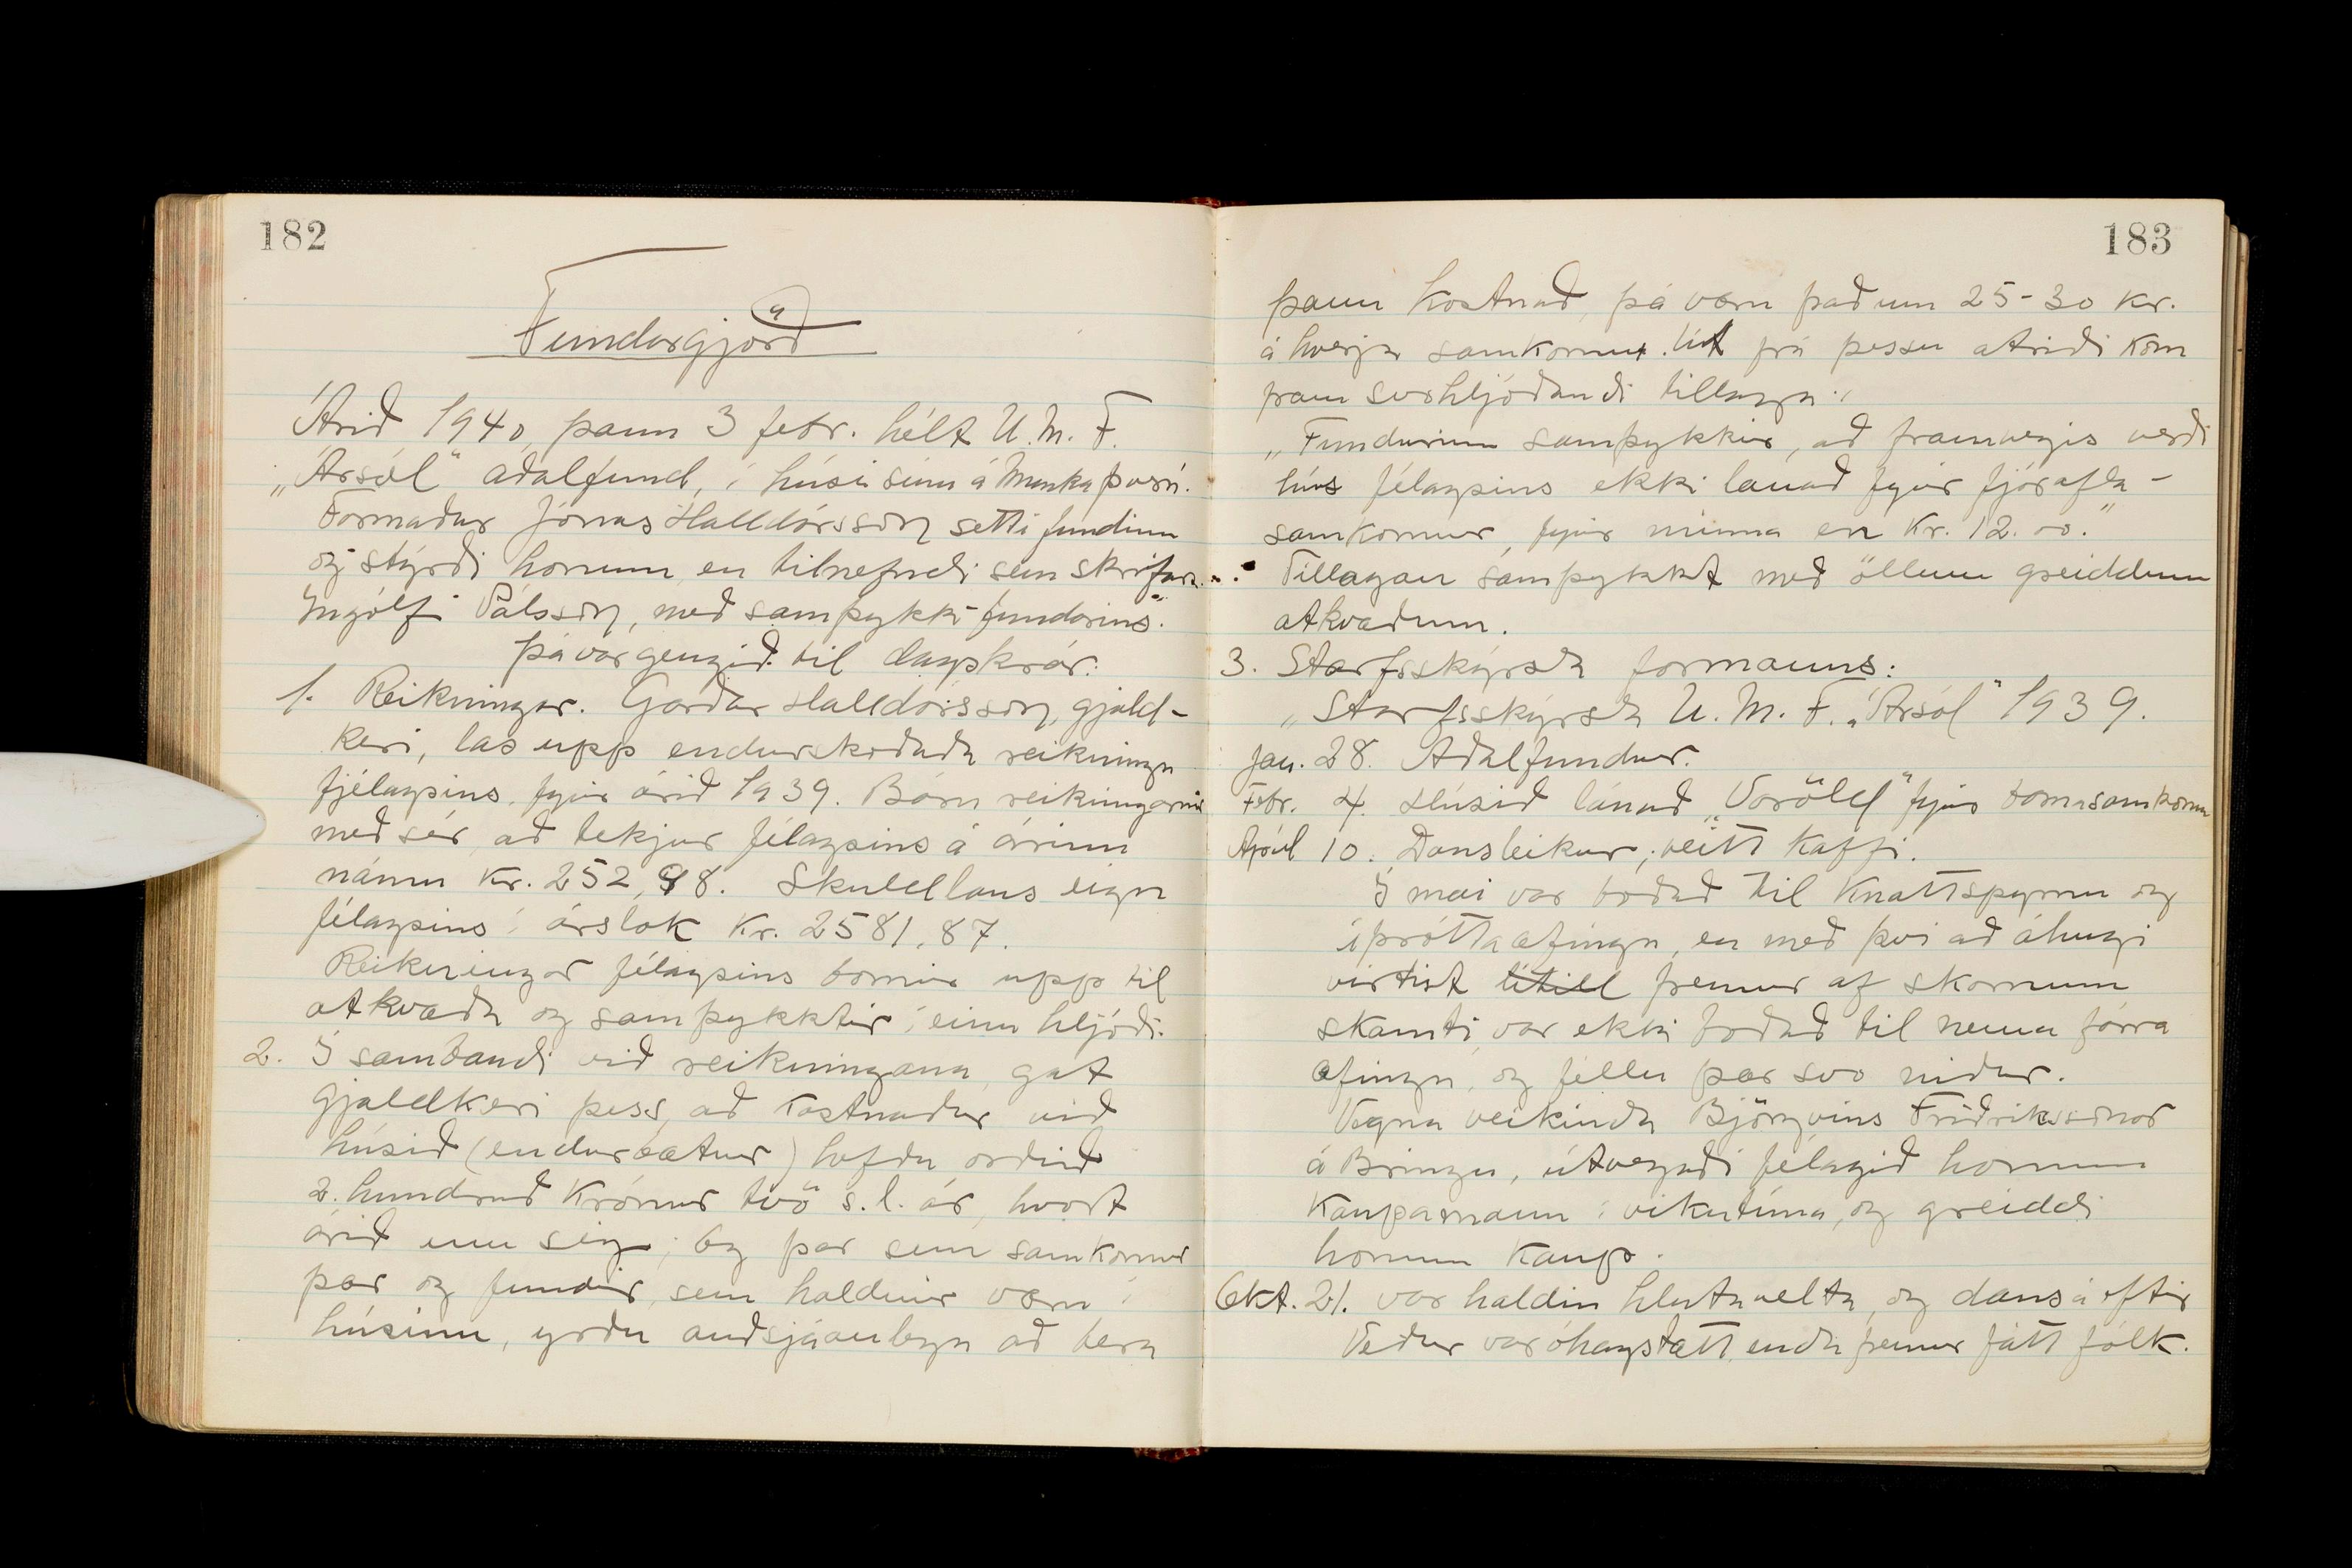 182
Fundargjörð
Árið 1940, þann 3 febr. hélt U.M.F.
„Ársól" aðalfund, í húsi sínu á Munkaþverá.
Formaður Jónas Halldórsson setti fundinn
og stýrði honum, en tilnefndi sem skrifara
Ingólf Pálsson, með samþykki fundarins.
Þá var gengið til dagskrár:
1. Reikningar. Garðar Halldórsson, gjald-
keri, las upp endurskoðaða reikninga
fjélagsins, fyrir árið 1939. Báru reikningarnir
með sér, að tekjur félagsins á árinu
námu kr. 252,98. Skuldlaus eign
félagsins í árslok kr. 2581,87.
Reikningar félagsins bornir upp til
atkvæða og samþykktir í einu hljóði.
2. Í sambandi við reikningana, gat
gjaldkeri þess, að kostnaður við
húsið (endurbætur) hefðu orðið
2. hundruð krónur tvö s.l. ár, hvort
árið um sig; Og þar sem samkomur
þær og fundir, sem haldnir væru í
húsinu, yrðu auðsjáanlega að bera
183
þann kostnað, þá væru það um 25-30 kr.
á hverja samkomu. Út frá þessu atriði kom
fram svohljóðandi tillaga:
„Fundurinn samþykkir, að framvegis verði
hús félagsins ekki lánað fyrir fjórafla-
samkomur, fyrir minna en kr. 12.00."
Tillagan samþykkt með öllum greiddum
atkvæðum.
3. Starfsskýrsla formanns:
„Starfsskýrsla U.M.F. „Ársól" 1939.
Jan. 28. Aðalfundur.
Febr. 4. Húsið lánað „Voröld" fyrir barnasamkomu
Apríl 10. Dansleikur; veitt kaffi.
Í maí var boðað til knattspyrnu og
íþróttaæfinga, en með því að áhugi
virtist lítill fremur af skornum
skamti, var ekki boðað til nema fárra
æfinga, og féllu þær svo niður.
Vegna veikinda Björgvins Friðrikssonar
á Bringu, útvegaði félagið honum
kaupamann í vikutíma, og greiddi
honum kaup.
Okt. 21. var haldin hlutavelta, og dans á eftir
Veður var óhagstætt, enda fremur fátt fólk.